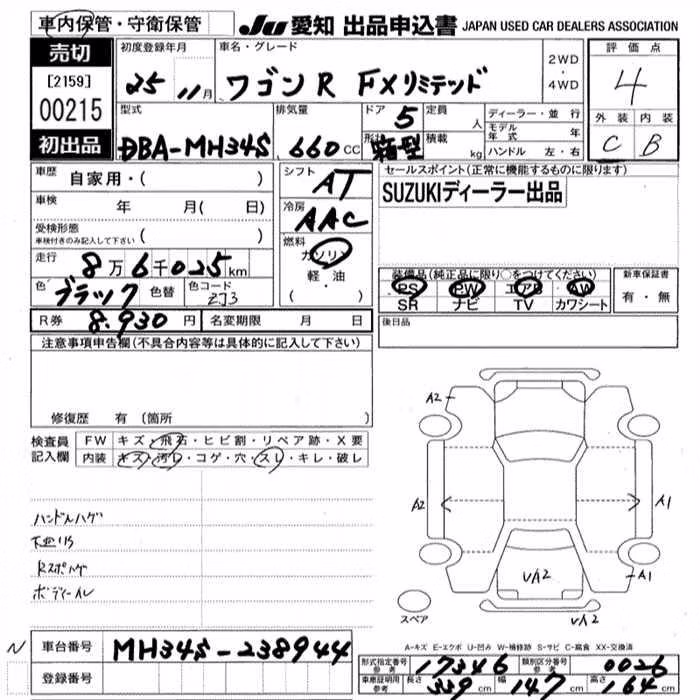 車内保管・守衛保管
JU 愛知 出品申込書 JAPAN USED CAR DEALERS ASSOCIATION
売切
[2159]
00215
初出品
初度登録年月
25 11月
車名・グレード
ワゴンR FXリミテッド
2WD
・
4WD
評価点
4
外装 内装
C B
型式
DBA-MH34S
排気量
660 CC
ドア 5
形状 箱型
定員 人
積載 kg
ディーラー・並行
モデル年式 年
ハンドル 左・右
車歴 自家用・( )
車検 年 月( 日)
受検形態
車検付きのみ記入して下さい ( )
走行 8万6千025km
色 ブラック 色替 色コード ZJ3
シフト AT
冷房 AAC
燃料
ガソリン
軽・油
( ・ )
セールスポイント(正常に機能するものに限ります)
SUZUKIディーラー出品
装備品(純正品に限り○をつけてください)
PS PW エアB AW
SR ナビ TV カワシート
新車保証書
有・無
R券 8.930円 名変期限 月 日
後日品
注意事項申告欄(不具合内容等は具体的に記入して下さい)
修復歴 有 (箇所
検査員
記入欄
FW キズ・飛石・ヒビ割・リペア跡・X要
内装 キズ・汚レ・コゲ・穴・スレ・キレ・破レ
ハンドルハゲ
Rスポハゲ
A2
A2
A1
A1
VA2
VA2
スペア
A-キズ E-エクボ U-凹み W-補修跡 S-サビ C-腐食 XX-交換済
N
車台番号 MH34S-238944
登録番号
形式指定番号 参考 17346 類別区分番号 参考 0026
車庫証明用 参考 長さ 339cm 幅 147cm 高さ 164cm